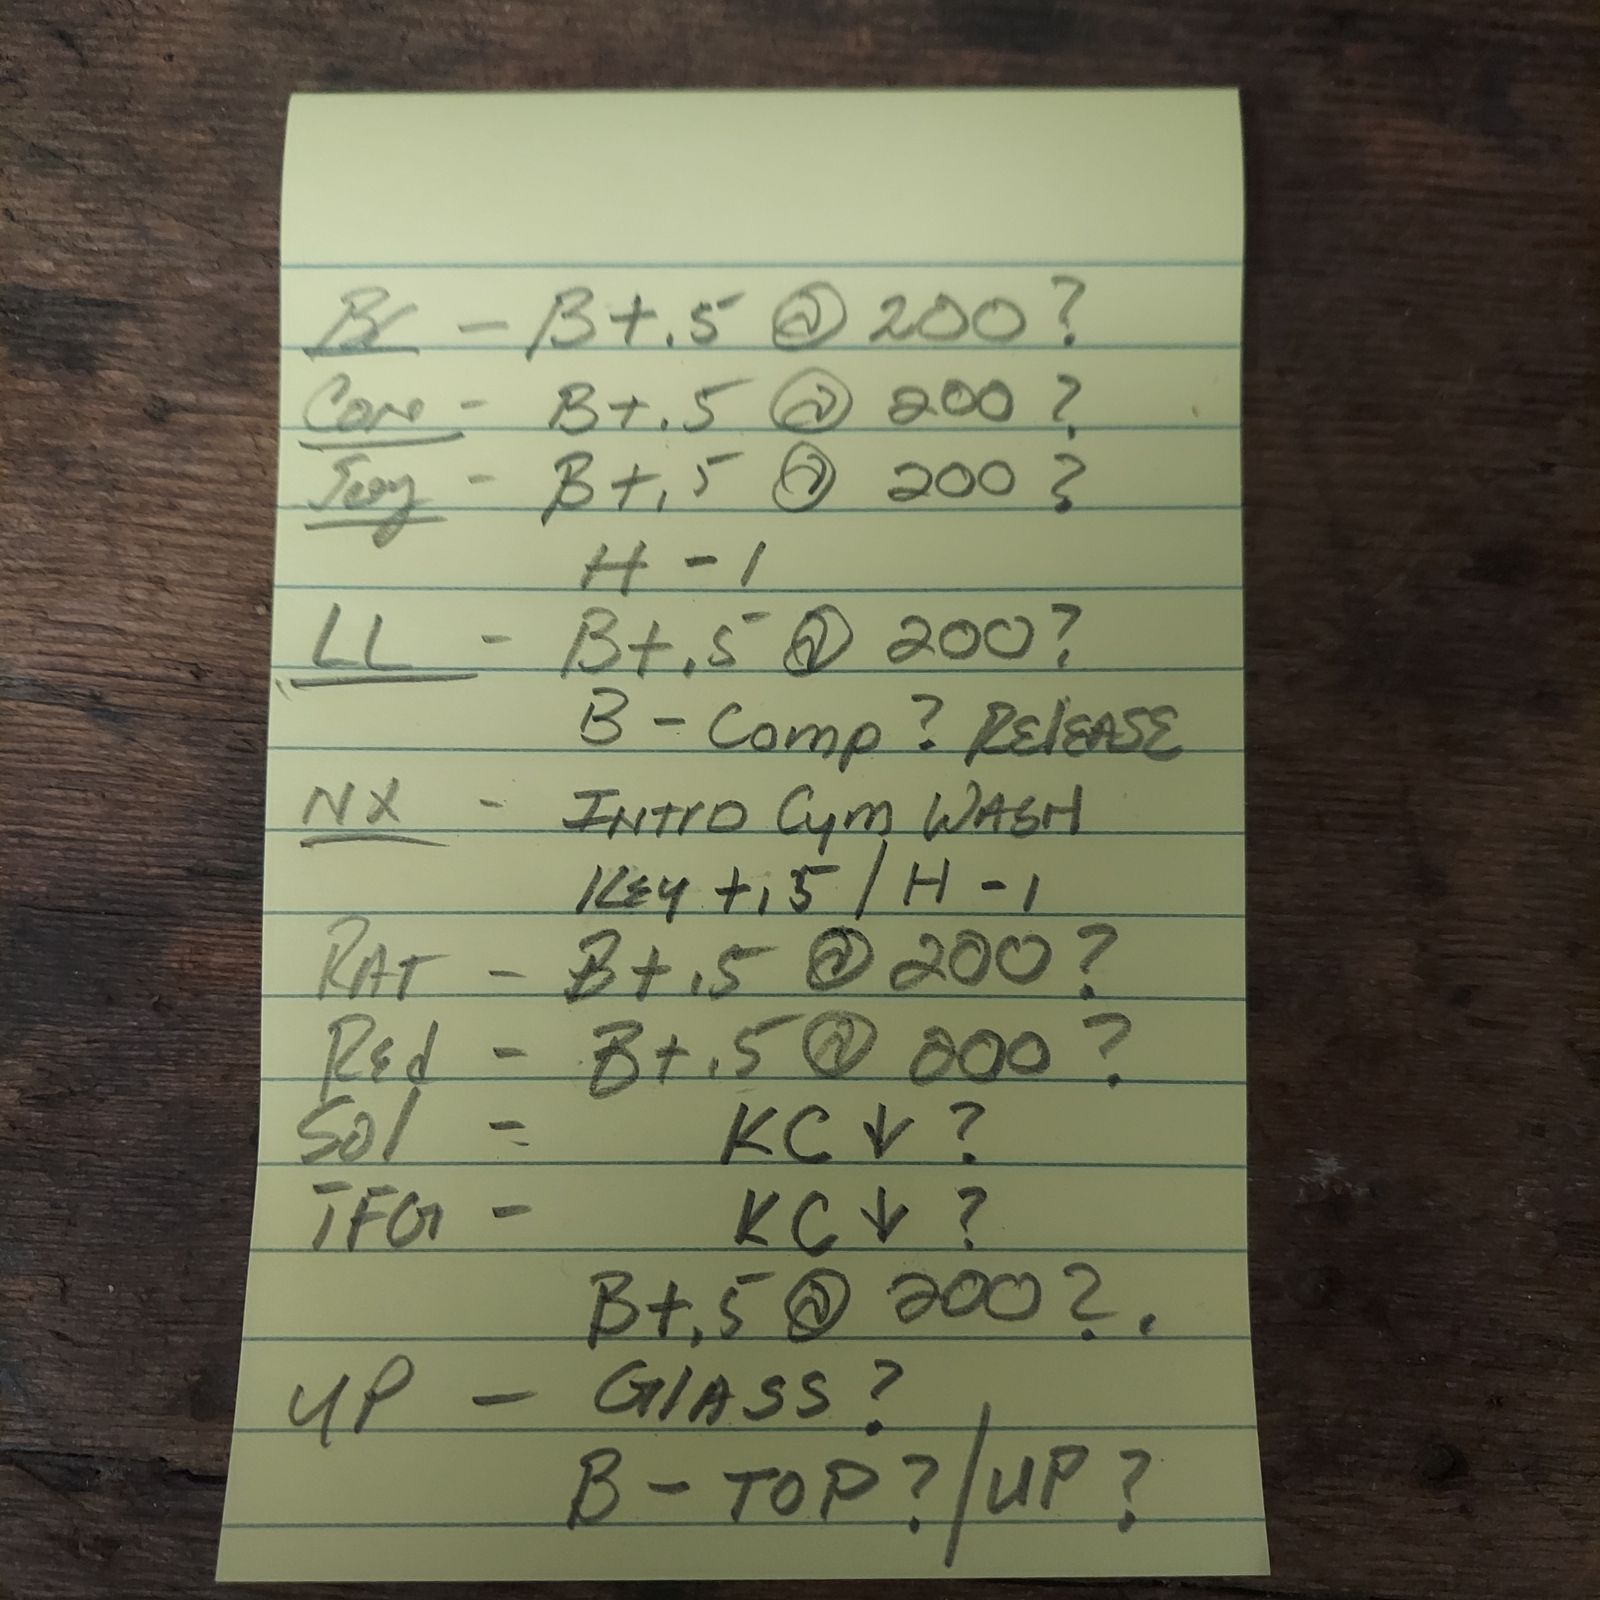 Br - B+.5 @ 200?
Core - B+.5 @ 200?
- B+.5 @ 200?
H -1
LL - B+.5 @ 200?
B - Comp? RElEASE
NX - INTRO Cym WASH
KEY +.5 / H -1
RAT - B+.5 @ 200?
REd - B+.5 @ 200?
Sol - KC ↓ ?
TFG - KC ↓ ?
B+.5 @ 200?.
UP - GlASS?
B - TOP? / UP?